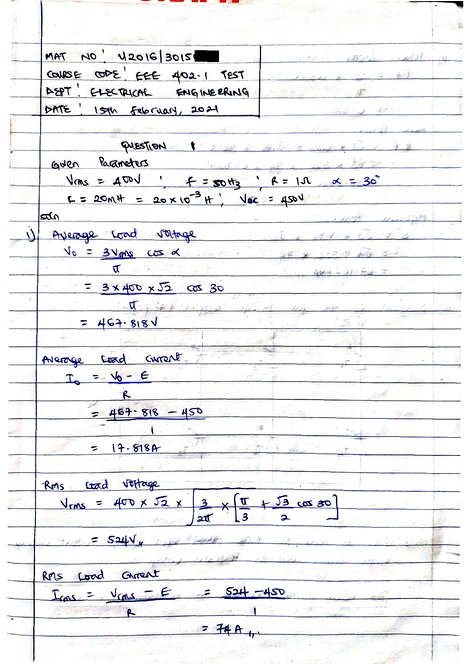 MAT NO: U2016/3015
COURSE CODE: EEE 402.1 TEST
DEPT: ELECTRICAL ENGINEERING
DATE: 15th February, 2021
QUESTION 1
Given Parameters
Vrms = 400V ; f = 50Hz ; R = 1Ω α = 30°
L = 20mH = 20 × 10⁻³ H ; VDC = 450V
soln
1) Average Load Voltage
V₀ = 3Vrms cos α / π
= 3 × 400 × √2 cos 30 / π
= 467.818V
Average Load Current
I₀ = V₀ - E / R
= 467.818 - 450 / 1
= 17.818A
Rms Load Voltage
Vrms = 400 × √2 × √ 3/2π × [π/3 + √3/2 cos 30]
= 524V,,
Rms Load Current
Irms = Vrms - E / R = 524 - 450 / 1
= 74A,,